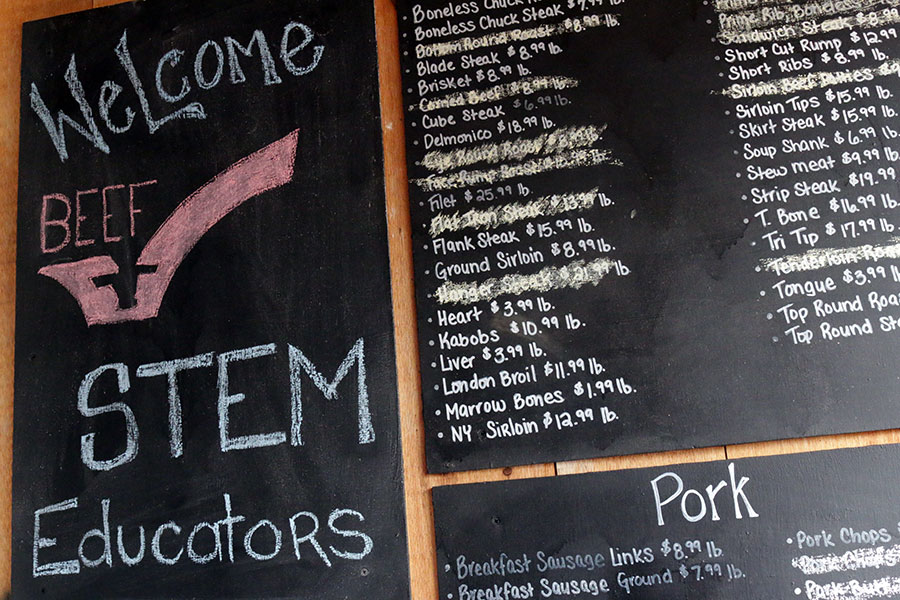 Welcome
BEEF
STEM
Educators
Boneless Chuck
Boneless Chuck Steak $7.99 lb.
Bottom Round Roast $8.99 lb.
Blade Steak $8.99 lb.
Brisket $8.99 lb.
Corned Beef $8.99 lb.
Cube Steak $6.99 lb.
Delmonico $18.99 lb.
Eye Round Roast
Face Rump Roast
Filet $25.99 lb.
Flat Iron Steak $13.99 lb.
Flank Steak $15.99 lb.
Ground Sirloin $8.99 lb.
Hanger Steak $21.99 lb.
Heart $3.99 lb.
Kabobs $10.99 lb.
Liver $3.99 lb.
London Broil $11.99 lb.
Marrow Bones $1.99 lb.
NY Sirloin $12.99 lb.
Prime Rib, Boneless
Sandwich Steak $8.99
Short Cut Rump $12.99
Short Ribs $8.99 lb.
Sirloin Beef Patties
Sirloin Tips $15.99 lb.
Skirt Steak $15.99 lb.
Soup Shank $6.99 lb.
Stew meat $9.99 lb.
Strip Steak $19.99
T. Bone $16.99 lb.
Tri Tip $17.99 lb.
Tenderloin
Tongue $3.99 l
Top Round Roa
Top Round Ste
Pork
Breakfast Sausage Links $8.99 lb
Breakfast Sausage Ground $7.99 lb.
Pork Chops
Pork Chops
Pork Butt